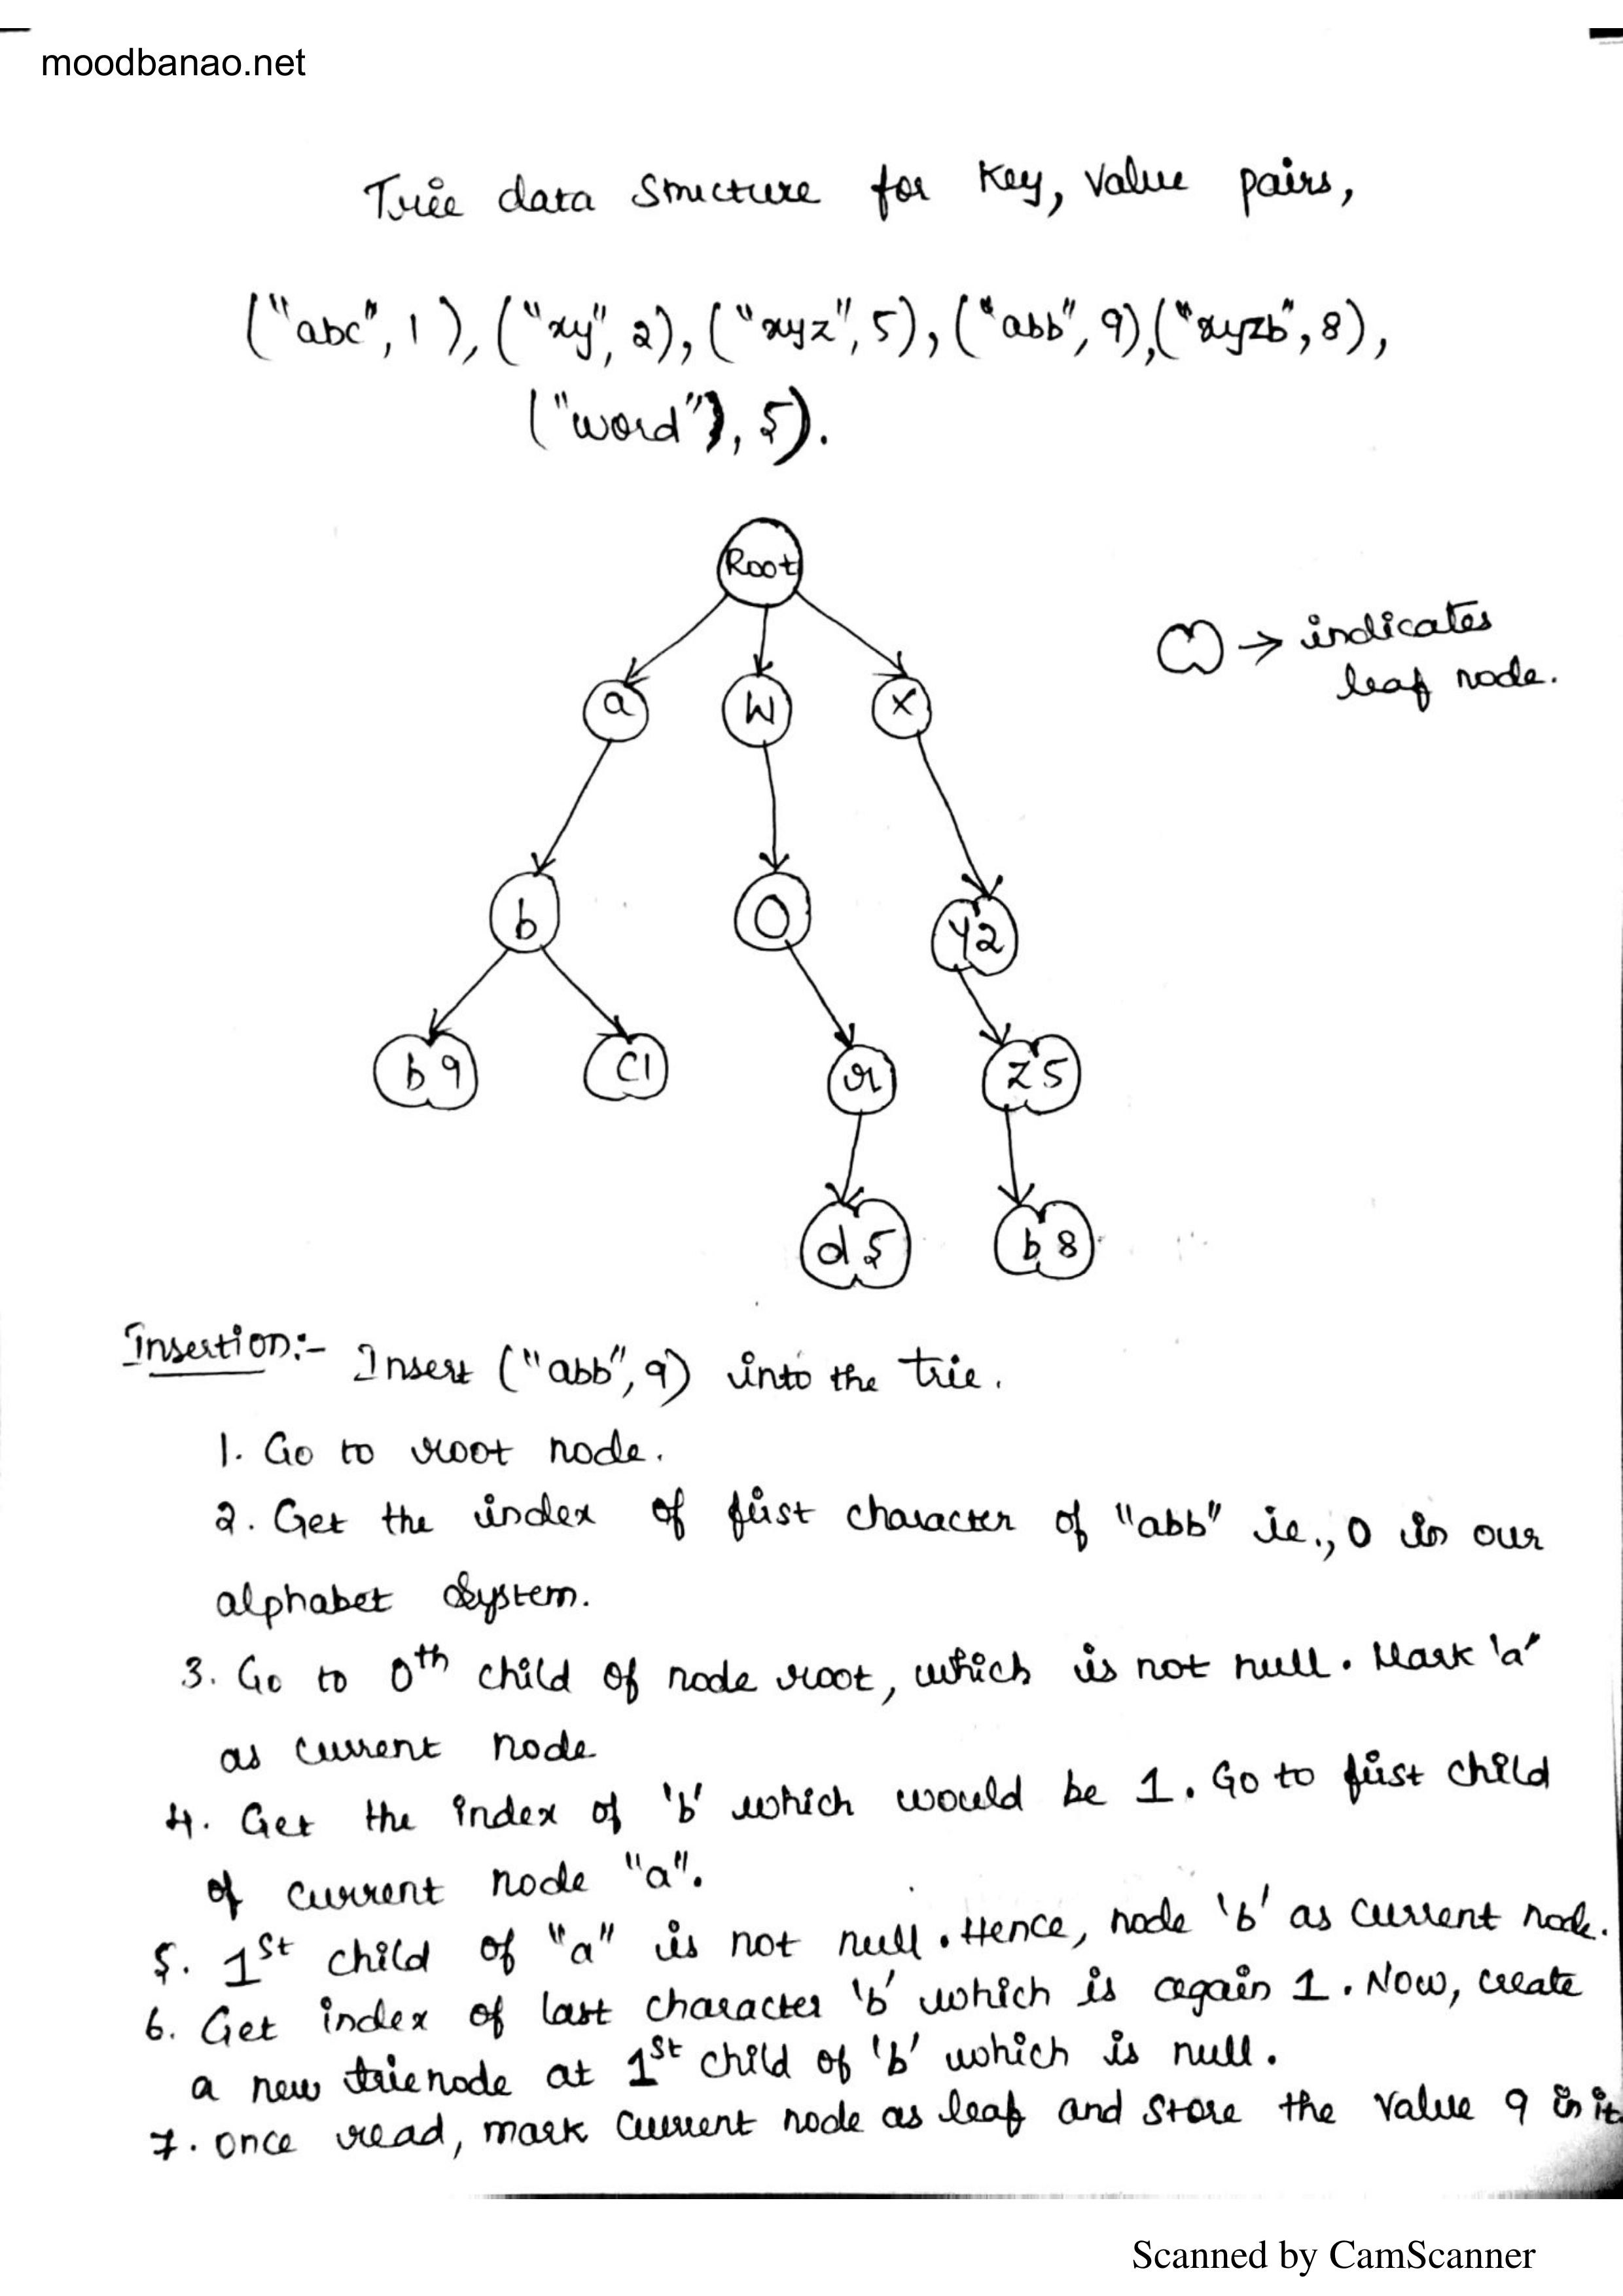 moodbanao.net
Trie data Structure for Key, Value pairs,
("abc", 1), ("xy", 2), ("xyz", 5), ("abb", 9), ("xyzb", 8),
("word"), 5).
Root
indicates
leaf node.
a W X
b O Y2
b9 C1 r Z5
d5 b8
Insertion:- Insert ("abb", 9) into the trie.
1. Go to root node.
2. Get the index of first character of "abb" ie., 0 in our
alphabet System.
3. Go to 0th child of node root, which is not null. Mark 'a'
as current node
4. Get the index of 'b' which would be 1. Go to first child
of current node "a".
5. 1st child of "a" is not null. Hence, node 'b' as current node.
6. Get index of last character 'b' which is again 1. Now, create
a new trienode at 1st child of 'b' which is null.
7. once read, mark current node as leaf and store the value 9 in it
Scanned by CamScanner